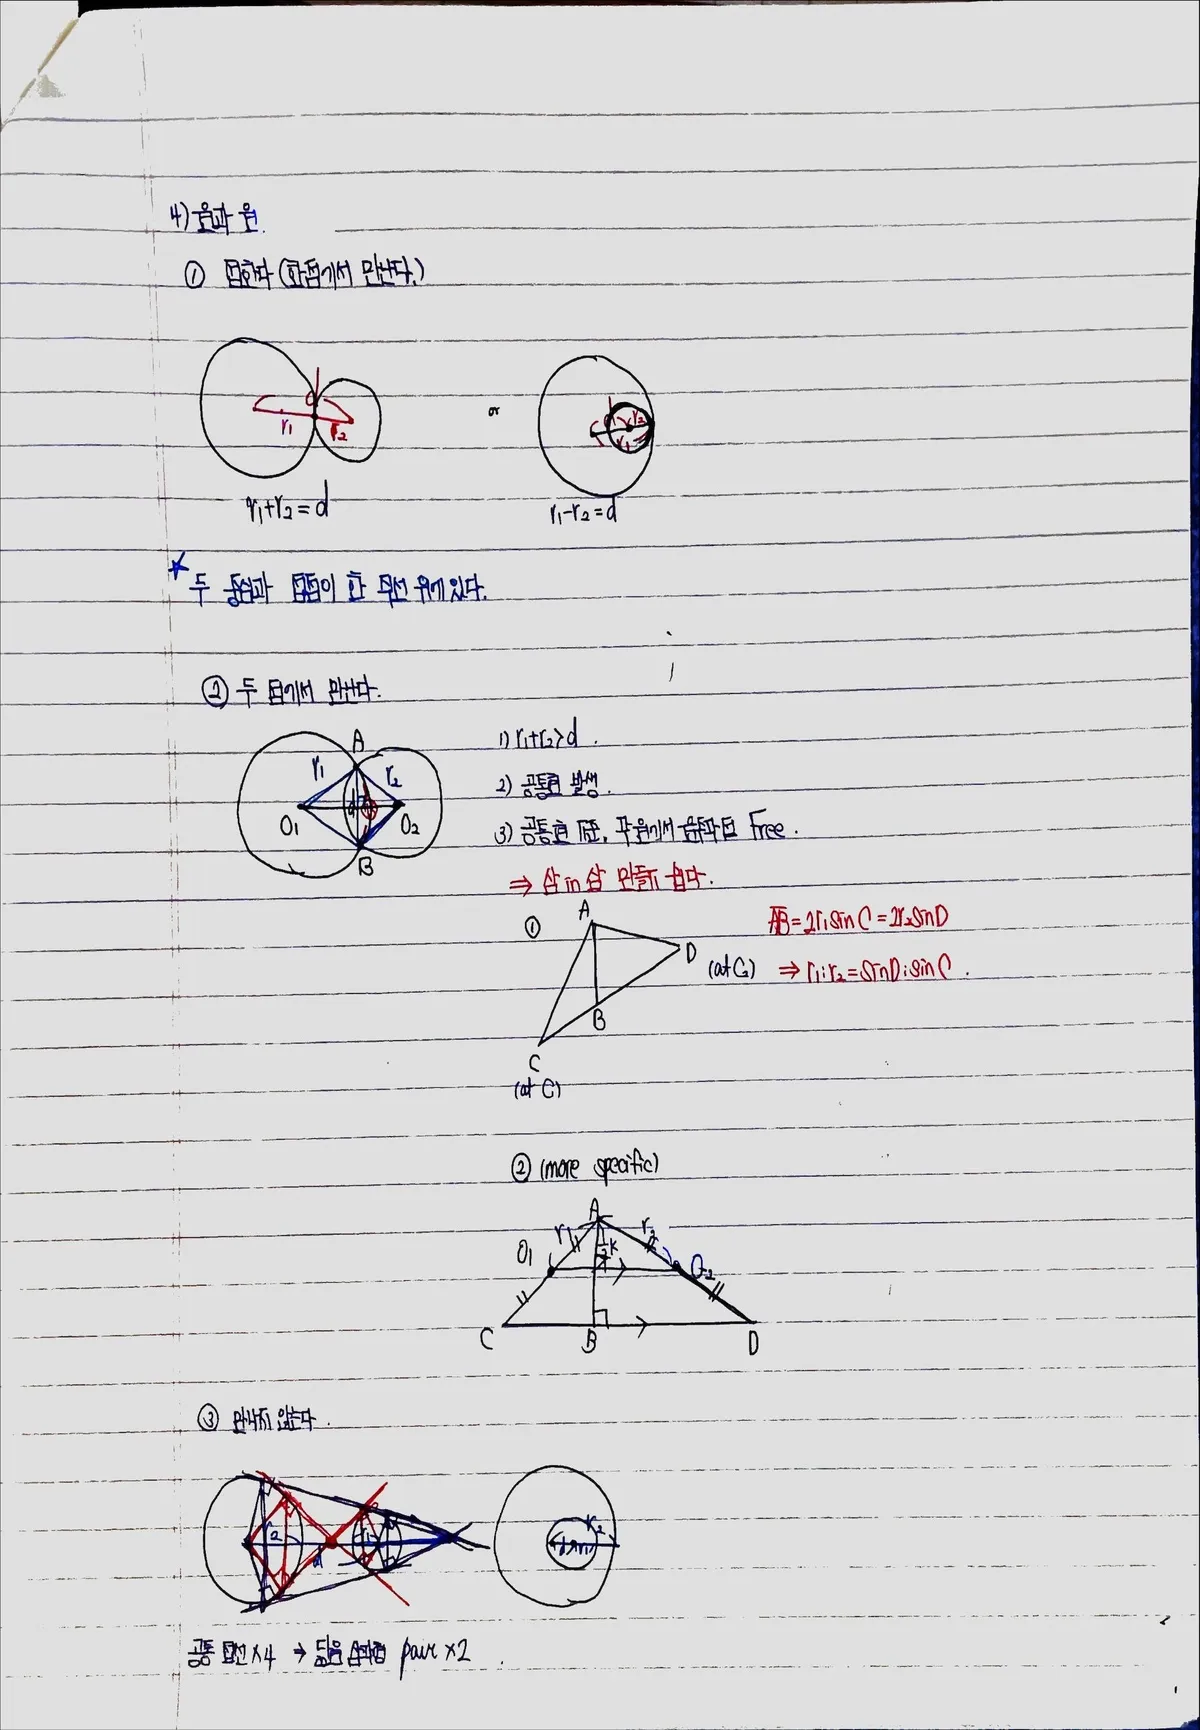 4) 원과 원.
① 접한다 (한점에서 만난다.)
r₁ r₂
or
r₁ r₂
r₁+r₂=d
r₁-r₂=d
★ 두 중심과 접점이 한 직선 위에 있다.
② 두 점에서 만난다.
A
r₁ r₂
d
O₁ O₂
B
1) r₁+r₂>d.
2) 공통현 발생.
3) 공통현 기준, 두 원에서 Free.
⇒ 삼 in 삼 만들기 쉽다.
①
A
D (at C₂)
B
C
(at C₁)
AB=2r₁sinC=2r₂sinD
⇒ r₁:r₂=sinD:sinC.
② (more specific)
A
r₁ r₂
O₁ O₂
C B D
③ 만나지 않는다.
r₂ r₁
d
r₂
공통 접선 ×4 → 닮은 삼각형 pair ×2